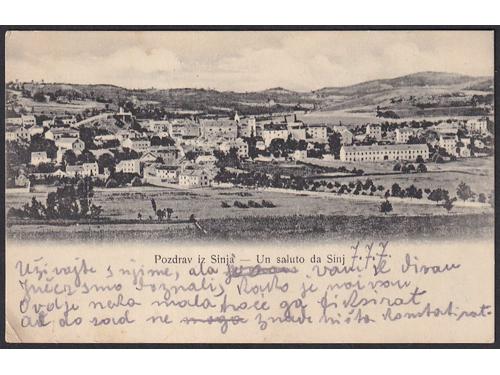 Pozdrav iz Sinja — Un saluto da Sinj 7.7.7.
Uživajte s njime, ala vam je divan
Jučer smo doznali, kako je noi vou
Ovdje neka mala hoće ga fiksirat
al do sad ne moga znade ništa konstatirat-